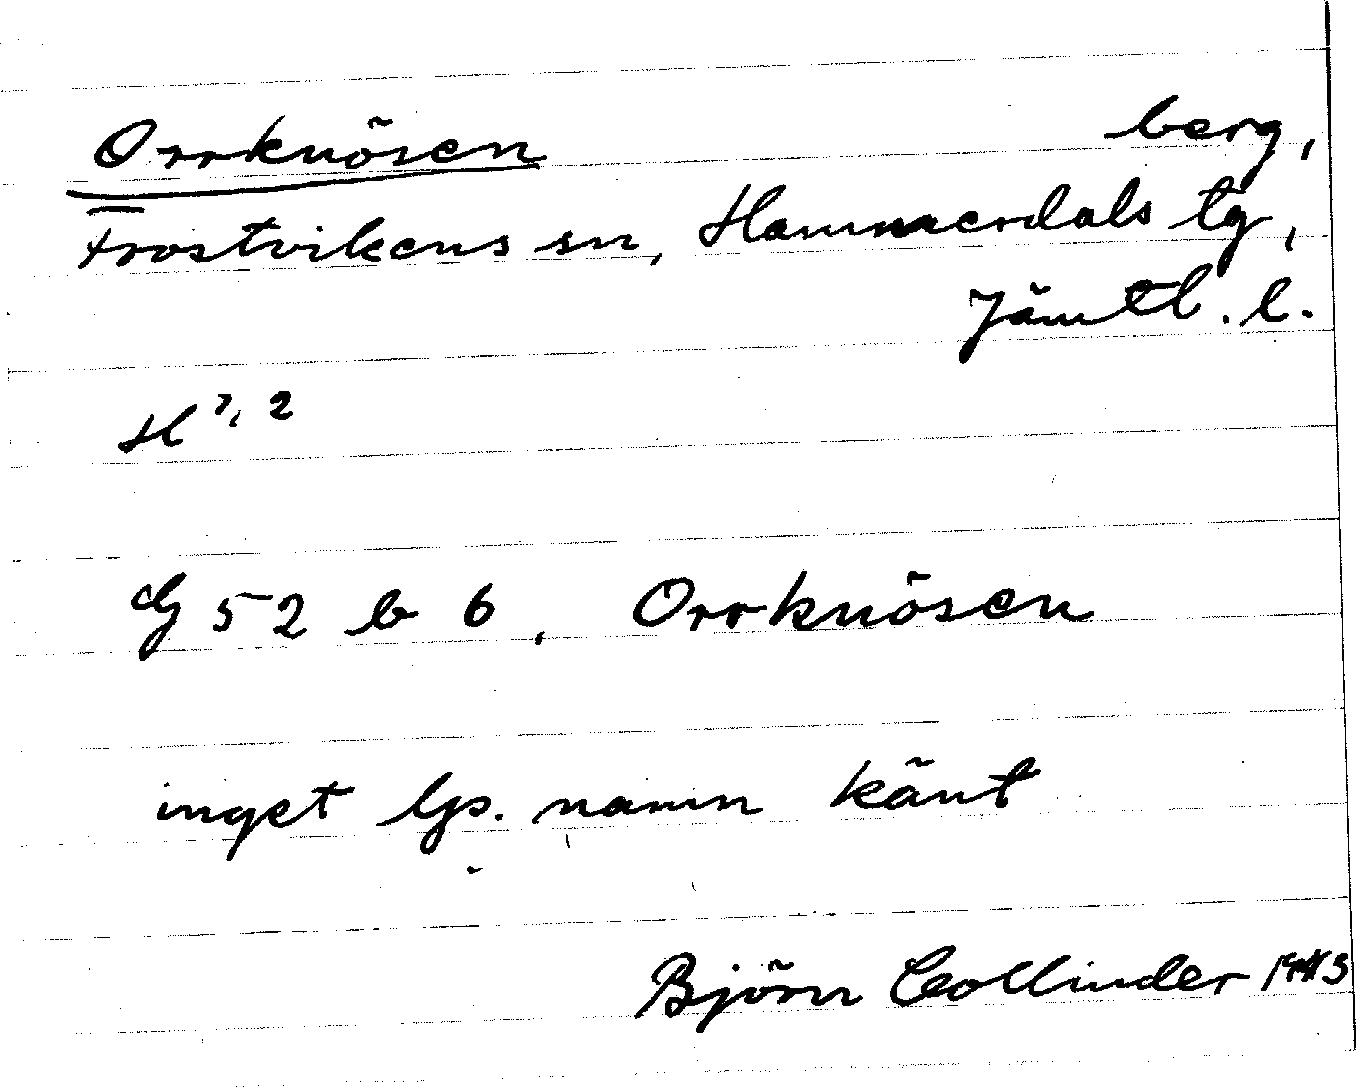 Orrknösen berg,
Frostvikens sn, Hammerdals tg,
Jämtl. l.
H 7, 2
G 52 b 6, Orrknösen
inget lp. namn känt
Björn Collinder 1943